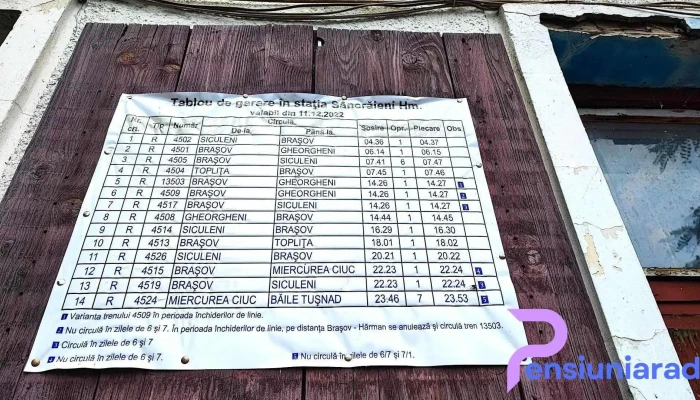 Tablou de garare în stația Sâncrăieni Hm.
valabil din 11.12.2022
Nr. crt. Tip Număr Circulă Sosire Opr. Plecare Obs
De-la, Până-la,
1 R 4502 SICULENI BRAȘOV 04.36 1 04.37
2 R 4501 BRAȘOV GHEORGHENI 06.14 1 06.15
3 R 4505 BRAȘOV SICULENI 07.41 6 07.47
4 R 4504 TOPLIȚA BRAȘOV 07.45 1 07.46
5 R 13503 BRAȘOV GHEORGHENI 14.26 1 14.27 1
6 R 4509 BRAȘOV GHEORGHENI 14.26 1 14.27 2
7 R 4517 BRAȘOV SICULENI 14.26 1 14.27 3
8 R 4508 GHEORGHENI BRAȘOV 14.44 1 14.45
9 R 4514 SICULENI BRAȘOV 16.29 1 16.30
10 R 4513 BRAȘOV TOPLIȚA 18.01 1 18.02
11 R 4526 SICULENI BRAȘOV 20.21 1 20.22
12 R 4515 BRAȘOV MIERCUREA CIUC 22.23 1 22.24 4
13 R 4519 BRAȘOV SICULENI 22.23 1 22.24 3
14 R 4524 MIERCUREA CIUC BĂILE TUȘNAD 23.46 7 23.53 5
1 Varianta trenului 4509 în perioada închiderilor de linie.
2 Nu circulă în zilele de 6 și 7. În perioada închiderilor de linie, pe distanța Brașov - Hărman se anulează și circulă tren 13503.
3 Circulă în zilele de 6 și 7
4 Nu circulă în zilele de 6 și 7. 5 Nu circulă în zilele de 6/7 și 7/1.
Pensiuniarad